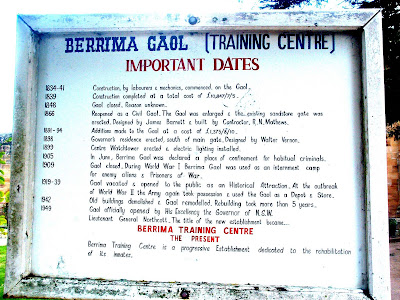 BERRIMA GAOL (TRAINING CENTRE)
IMPORTANT DATES
1834-41 Construction, by labourers & mechanics, commenced, on the Gaol.
1839 Construction completed at a total cost of
1848 Gaol closed. Reason unknown.
1866 Reopened as a Civil Gaol. The Gaol was enlarged & the existing sandstone gate was
erected. Designed by James Barnett & built by Contractor, R. N. Mathews.
Additions made to the Gaol at a cost of
1898 Governor's residence erected, south of main gate. Designed by Walter Vernon.
1899 Centre Watchtower erected & electric lighting installed.
1905 In June, Berrima Gaol was declared a place of confinement for habitual criminals.
1909 Gaol closed. During World War I Berrima Gaol was used as an internment camp
for enemy aliens & Prisoners of War.
1919-39 Gaol vacated & opened to the public as an Historical Attraction. At the outbreak
of World War II the Army again took possession & used the Gaol as a Depot & Store.
1942 Old buildings demolished & Gaol remodelled. Rebuilding took more than 5 years.
1949 Gaol officially opened by His Excellency the Governor of N.S.W.
Lieutenant General Northcott. The title of the new establishment became...
BERRIMA TRAINING CENTRE
THE PRESENT
Berrima Training Centre is a progressive Establishment dedicated to the rehabilitation
of its inmates.